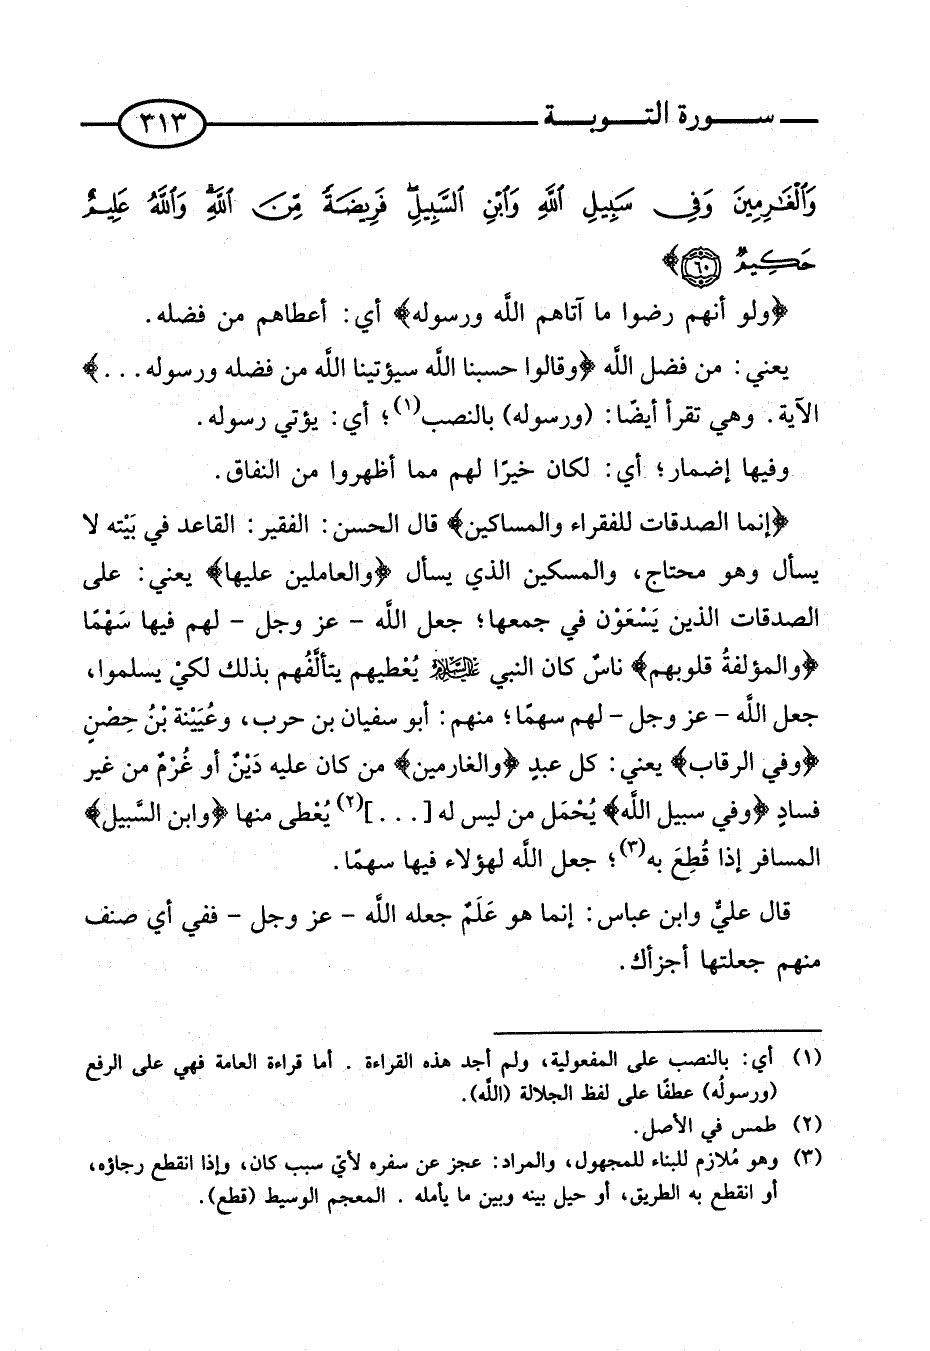 سورة التوبة ٣١٣
وَٱلْغَٰرِمِينَ وَفِى سَبِيلِ ٱللَّهِ وَٱبْنِ ٱلسَّبِيلِ ۖ فَرِيضَةً مِّنَ ٱللَّهِ ۗ وَٱللَّهُ عَلِيمٌ
حَكِيمٌ ٦٠﴾
﴿ولو أنهم رضوا ما آتاهم اللَّه ورسوله﴾ أي: أعطاهم من فضله.
يعني: من فضل اللَّه ﴿وقالوا حسبنا اللَّه سيؤتينا اللَّه من فضله ورسوله...﴾
الآية. وهي تقرأ أيضًا: (ورسوله) بالنصب(١)؛ أي: يؤتي رسوله.
وفيها إضمار؛ أي: لكان خيرًا لهم مما أظهروا من النفاق.
﴿إنما الصدقات للفقراء والمساكين﴾ قال الحسن: الفقير: القاعد في بَيْته لا
يسأل وهو محتاج، والمسكين الذي يسأل ﴿والعاملين عليها﴾ يعني: على
الصدقات الذين يَسْعَوْن في جمعها؛ جعل اللَّه - عز وجل - لهم فيها سَهْمًا
﴿والمؤلفةُ قلوبهم﴾ ناسٌ كان النبي عليه السلام يُعْطيهم يتألَّفُهم بذلك لكيْ يسلموا،
جعل اللَّه - عز وجل - لهم سهمًا؛ منهم: أبو سفيان بن حرب، وعُيَيْنة بْنُ حِصْنٍ
﴿وفي الرقاب﴾ يعني: كل عبدٍ ﴿والغارمين﴾ من كان عليه دَيْنٌ أو غُرْمٌ من غير
فسادٍ ﴿وفي سبيل اللَّه﴾ يُحْمَل من ليس له [...](٢) يُعْطى منها ﴿وابن السَّبيل﴾
المسافر إذا قُطِعَ به(٣)؛ جعل اللَّه لهؤلاء فيها سهمًا.
قال عليٌّ وابن عباس: إنما هو عَلَمٌ جعله اللَّه - عز وجل - ففي أي صنف
منهم جعلتها أجزأك.
(١) أي: بالنصب على المفعولية، ولم أجد هذه القراءة . أما قراءة العامة فهي على الرفع
(ورسولُه) عطفًا على لفظ الجلالة (اللَّه).
(٢) طمس في الأصل.
(٣) وهو مُلازم للبناء للمجهول، والمراد: عجز عن سفره لأيّ سبب كان، وإذا انقطع رجاؤه،
أو انقطع به الطريق، أو حيل بينه وبين ما يأمله . المعجم الوسيط (قطع).